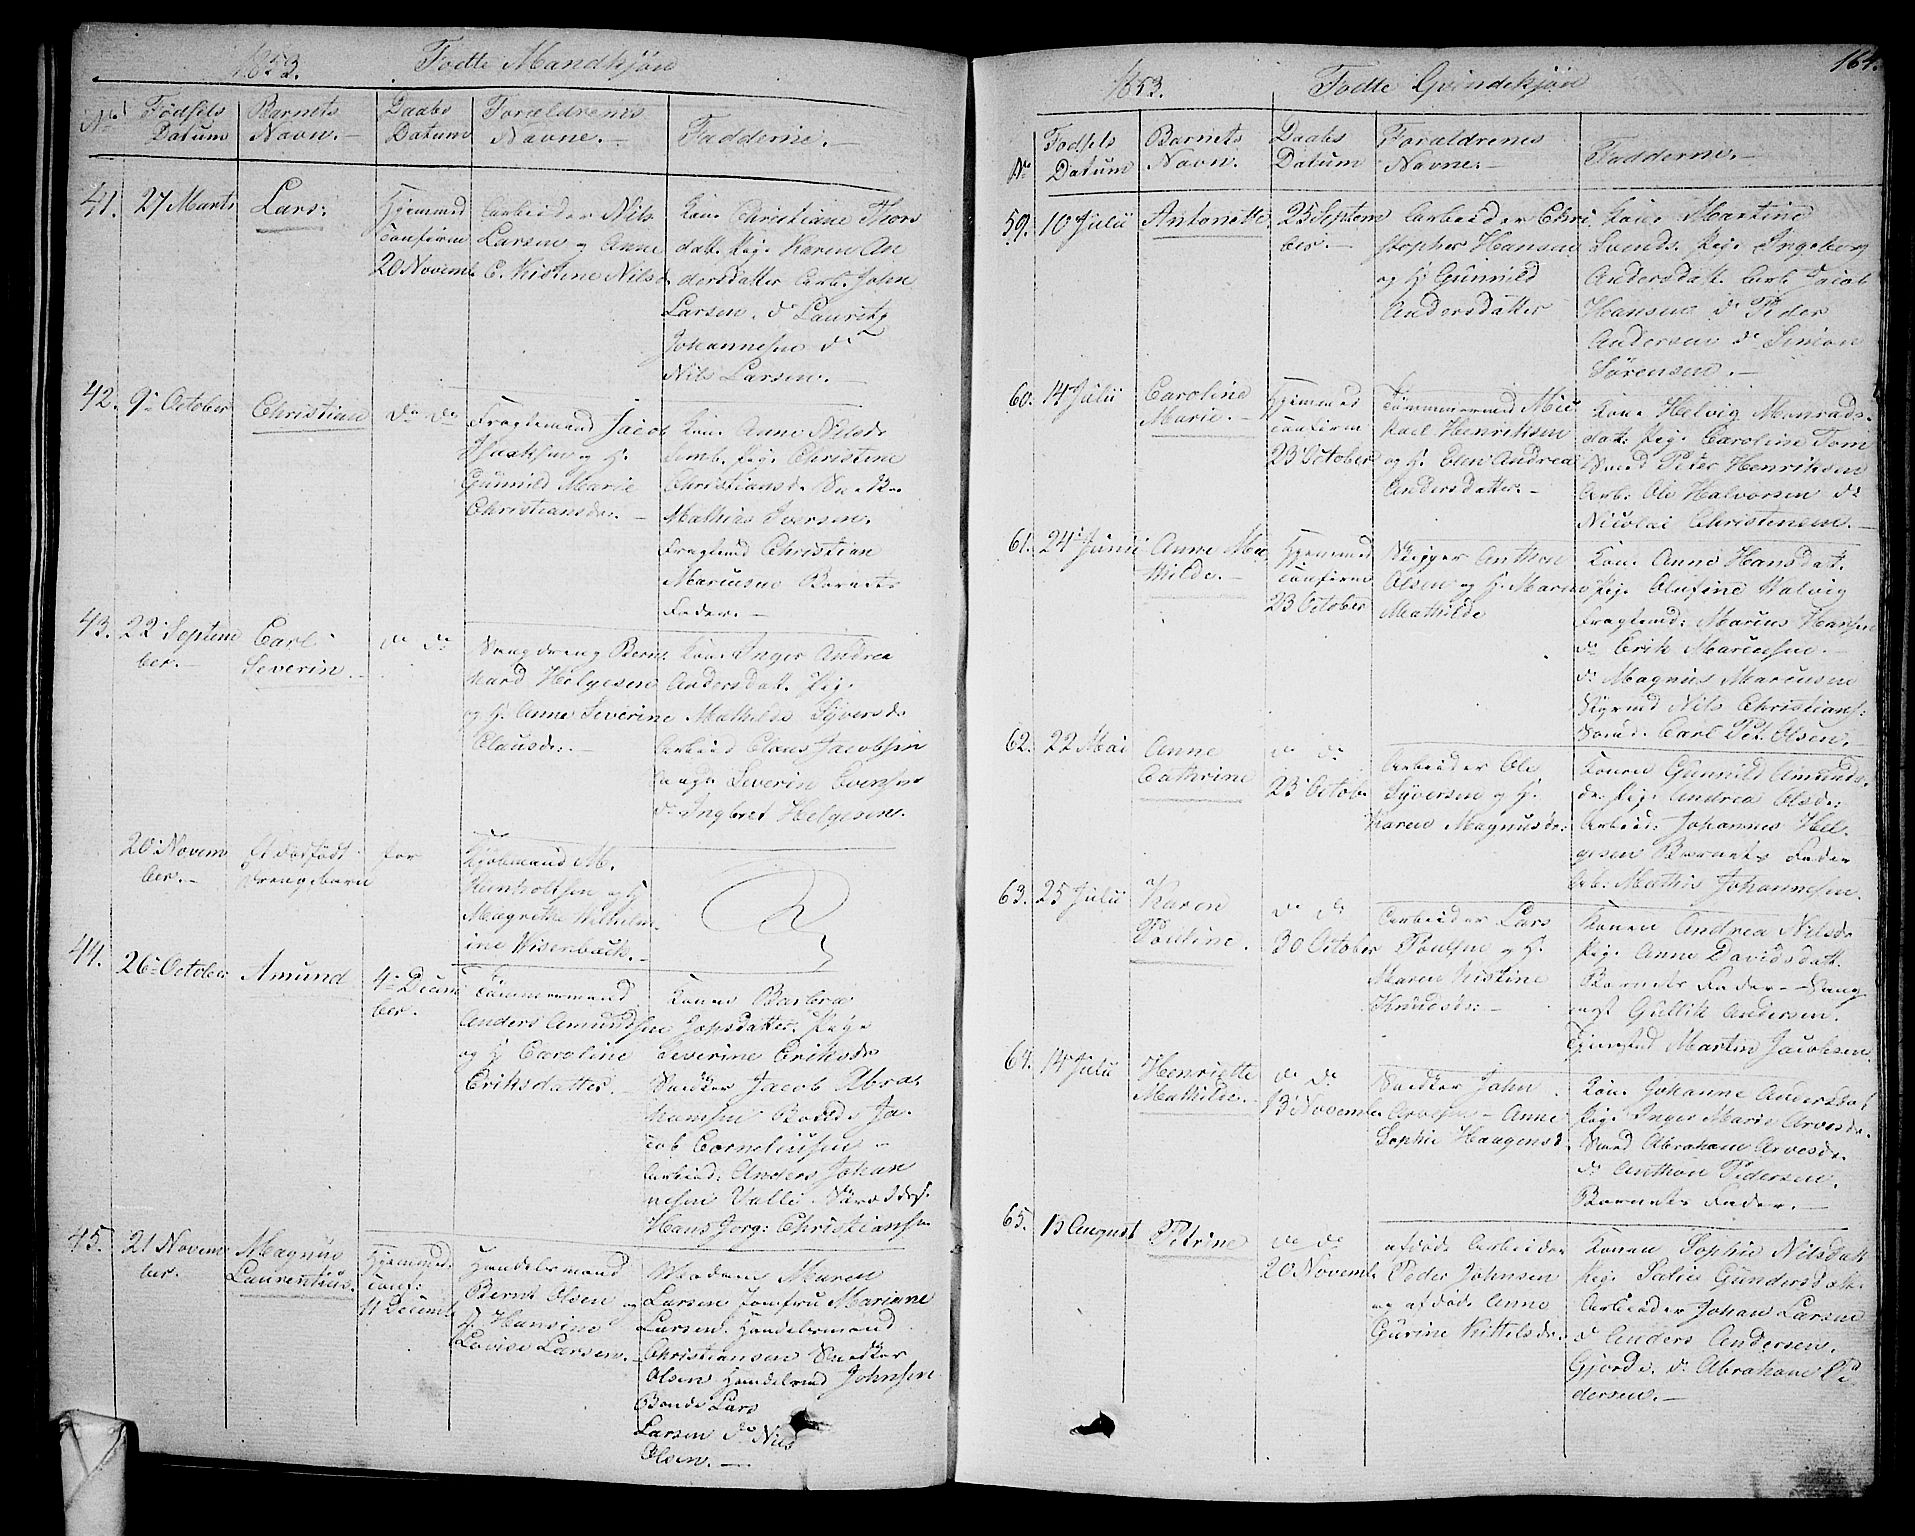 1853. Fødte Mandkjøn
No
Fødsels Datum
Barnets Navn.-
Daabs Datum
Forældrenes Navne.-
Fadderne.-
41. 27 Marts
Lars:
Hjemmed
confirm
20 Novemb
Arbeider Nils
Larsen og Anne
E. Kistine Nilsd.
Kon. Christiane Thors
datt. Pig. Karen An
dersdatter Arb. John
Larsen. do Lauritz
Johannesen do
Nils Larsen.-
42. 9de October
Christian
do do
Fragtemand Jacob
og H.
Gunnild Marie
Christiansdr.-
Kon. Anne Nilsdr
Pig. Christine
Christiansdr Snedk.
Mathias Iversen.
Fragtmd Christian
Mariusen Barnets
Fader.-
43. 22 Septem
ber.-
Carl
Severin.-
do do
Bern
hard Helgesen
og H. Anne Severine
Clausdr.-
Kon. Inger Andrea
Andersdatt. Pig.
Mathilde Syversdr
Arbeid Claus Jacobsen
Severin Evensen
do Ingbret Helgesen.
20 Novem
ber.-
Et dødfødt
Drengebarn
for
Kjøbmand M.
Reinholtsen og H
Magrethe Wilhelm
ine Wisenbach.-
44.
26de October
Amund
4de Decem
ber.
Tømmermand
Anders Amundsen
og H Caroline
Eriksdatter.-
Konen Barbra
Jopsdatter. Pige
Severine Eriksdr
Snedker Jacob Abra
hamsen Ja
cob Corneliusen -
Arbeid: Anders Johan
nesen Valle.
Hans Jørg: Christiansen
45. 21 Novem
ber.
Magnus
Laurentius.
Hjemmed.
conf:
11 Decemb
Handelsmand
Bernt Olsen og
H. Hansine
Lovise Larsen.-
Madam Maren
Larsen Jomfru Mariane
Larsen. Handelsmand
Christiansen Snedker
Olsen Handelsmd Johnsen
Bonde Lars
Larsen do Nils
Olsen.-
1853. Fødte Qvindekjøn
164.
No
Fødsels Datum
Barnets Navn.
Daabs Datum
Forældrenes Navne.-
Fadderne.-
59. 10 Julii
Antonette
25 Septem
ber.-
Arbeider Chri
stopher Hansen
og H. Gunnild
Andersdatter
Kon. Martine
Svends. Pig. Ingeborg
Andersdatt. Arb. Jacob
Hansen do Peder
Andersen do Simon
Sørensen.-
60. 14 Julii
Caroline
Marie.-
Hjemmed
confirm
23 October
Tømmermd Mic
kael Henriksen
og H. Elen Andrea
Andersdatter.-
Kon. Helvig Monrads
dat: Pig. Caroline Tom
Peter Henriksen
Arb. Ole Halvorsen do
Nicolai Christensen.-
61. 24 Junii
Anne Ma
thilde.-
Hjemmed
confirm
23 October
Skipper Anthon
Olsen og H. Maren
Mathilde
Kon. Anne Hansdat.
Pig. Olufine Valvig
Fragtmd: Marius Hansen
do Erik Mariusen.-
do Magnus Marcusen
Nils Christians:
Carl Pet. Olsen.-
62. 22 Mai
Anne
Cathrine
do do
23 Octobe
Arbeider Ole
Syversen og H.
Karen Magnusdr:
Konen Gunnild Amunds
dr. Pig. Andrea Olsdr:
Arbeid: Johannes Hel
gesen Barnets Fader
Arb. Mathis Johannesen.
63. 25 Julii
Karen
Pouline.
do do
30 October
Arbeider Lars
Poulsen og H.
Maren Kistine
Knudsdr:-
Konen Andrea Nilsdr
Pig. Anne Davidsdatt.
Barnets Fader.-
Gullik Andersen.
Martin Jacobsen
64. 14 Julii
Henriette
Mathilde.-
do do
13 Novemb
Snedker John
- Anne
Sophie Haagensd.
Kon. Johanne Andersdat
Pig. Inger Marie Arvesdr.
Abraham Arvesdr.
do Anthon Pedersen.
Barnets Fader.-
65. 15 August
Petrine
do do
20 Novemb.
afdøde Arbeider
Peder Johnsen
og afdøde Anne
Gurine Kittelsdr.
Konen Sophie Nilsdatt
Pig. Gundersdatt.
Arbeider Johan Larsen
do Anders Andersen.
Gjorde. do Abraham Pe
dersen.-